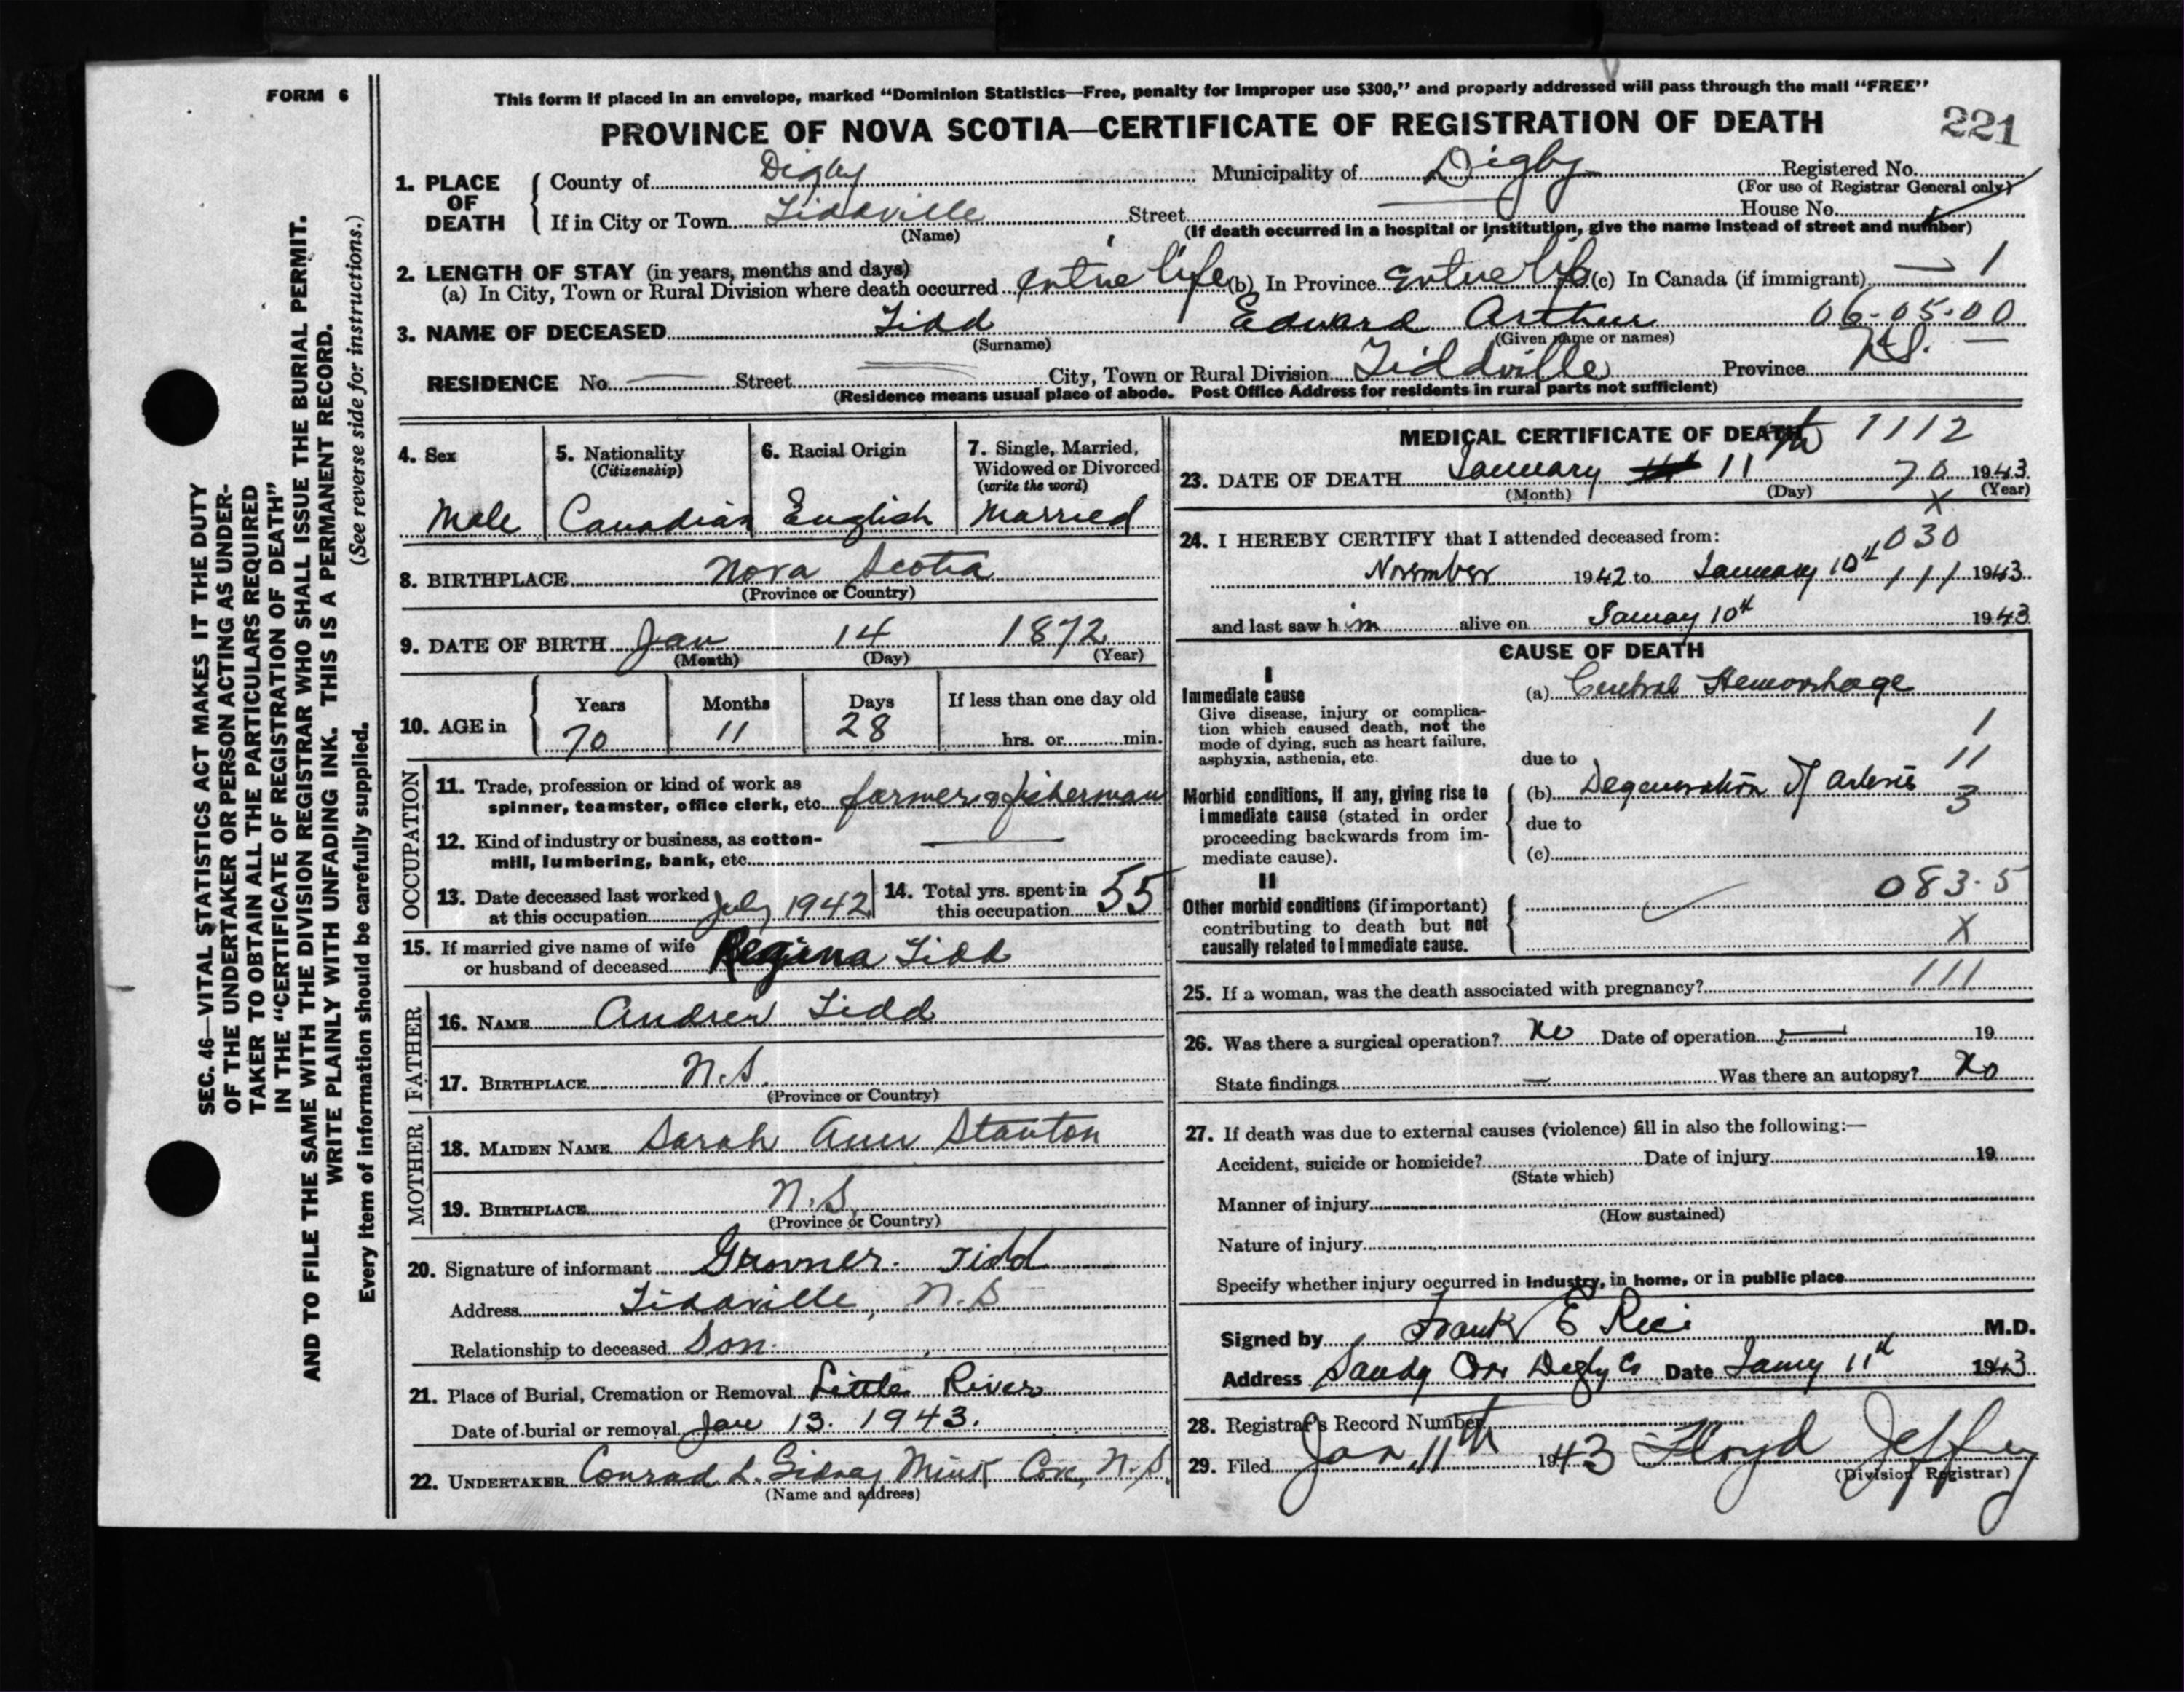 FORM 6
This form if placed in an envelope, marked "Dominion Statistics—Free, penalty for improper use $300," and properly addressed will pass through the mail "FREE"
PROVINCE OF NOVA SCOTIA—CERTIFICATE OF REGISTRATION OF DEATH
221
SEC. 46—VITAL STATISTICS ACT MAKES IT THE DUTY
OF THE UNDERTAKER OR PERSON ACTING AS UNDER-
TAKER TO OBTAIN ALL THE PARTICULARS REQUIRED
IN THE "CERTIFICATE OF REGISTRATION OF DEATH"
AND TO FILE THE SAME WITH THE DIVISION REGISTRAR WHO SHALL ISSUE THE BURIAL PERMIT.
WRITE PLAINLY WITH UNFADING INK. THIS IS A PERMANENT RECORD.
Every item of information should be carefully supplied. (See reverse side for instructions.)
1. PLACE OF DEATH
County of Digby Municipality of Digby Registered No.
(For use of Registrar General only)
If in City or Town Tiddville Street House No.
(Name) (If death occurred in a hospital or institution, give the name instead of street and number)
2. LENGTH OF STAY (in years, months and days)
(a) In City, Town or Rural Division where death occurred entire life (b) In Province Entire life (c) In Canada (if immigrant) — 1
3. NAME OF DECEASED Tidd Edward Arthur 06-05-00
(Surname) (Given name or names)
RESIDENCE No. — Street City, Town or Rural Division Tiddville Province N.S. —
(Residence means usual place of abode. Post Office Address for residents in rural parts not sufficient)
4. Sex
Male
5. Nationality
(Citizenship)
Canadian
6. Racial Origin
English
7. Single, Married,
Widowed or Divorced
(write the word)
Married
8. BIRTHPLACE Nova Scotia
(Province or Country)
9. DATE OF BIRTH Jan 14 1872
(Month) (Day) (Year)
10. AGE in Years Months Days If less than one day old
70 11 28 hrs. or min.
OCCUPATION
11. Trade, profession or kind of work as
spinner, teamster, office clerk, etc. farmer & fisherman
12. Kind of industry or business, as cotton-
mill, lumbering, bank, etc. —
13. Date deceased last worked
at this occupation July 1942
14. Total yrs. spent in
this occupation 55
15. If married give name of wife
or husband of deceased Regina Tidd
FATHER
16. NAME Andrew Tidd
17. BIRTHPLACE N.S.
(Province or Country)
MOTHER
18. MAIDEN NAME Sarah Ann Stanton
19. BIRTHPLACE N.S.
(Province or Country)
20. Signature of informant Tidd
Address Tiddville, N.S
Relationship to deceased Son
21. Place of Burial, Cremation or Removal Little River
Date of burial or removal Jan 13. 1943.
22. UNDERTAKER Conrad L. Mink Cove, N.S.
(Name and address)
MEDICAL CERTIFICATE OF DEATH 1112
23. DATE OF DEATH January 11th 70 1943
(Month) (Day) (Year)
X
24. I HEREBY CERTIFY that I attended deceased from: 030
November 1942 to January 10th 111 1943
and last saw him alive on January 10th 1943
CAUSE OF DEATH
I
Immediate cause
Give disease, injury or complica-
tion which caused death, not the
mode of dying, such as heart failure,
asphyxia, asthenia, etc.
(a) Cerebral Hemorrhage
1
due to 11
Morbid conditions, if any, giving rise to
immediate cause (stated in order
proceeding backwards from im-
mediate cause).
(b) Degeneration of arteries 3
due to
(c)
II
Other morbid conditions (if important)
contributing to death but not
causally related to immediate cause.
083-5
X
25. If a woman, was the death associated with pregnancy? 111
26. Was there a surgical operation? no Date of operation 19
State findings — Was there an autopsy? No
27. If death was due to external causes (violence) fill in also the following:—
Accident, suicide or homicide? Date of injury 19
(State which)
Manner of injury
(How sustained)
Nature of injury
Specify whether injury occurred in Industry, in home, or in public place
Signed by Frank E Rice M.D.
Address Sandy Cove Digby Co Date 11th 1943
28. Registrar's Record Number
29. Filed Jan 11th 1943 Floyd Jeffrey
(Division Registrar)